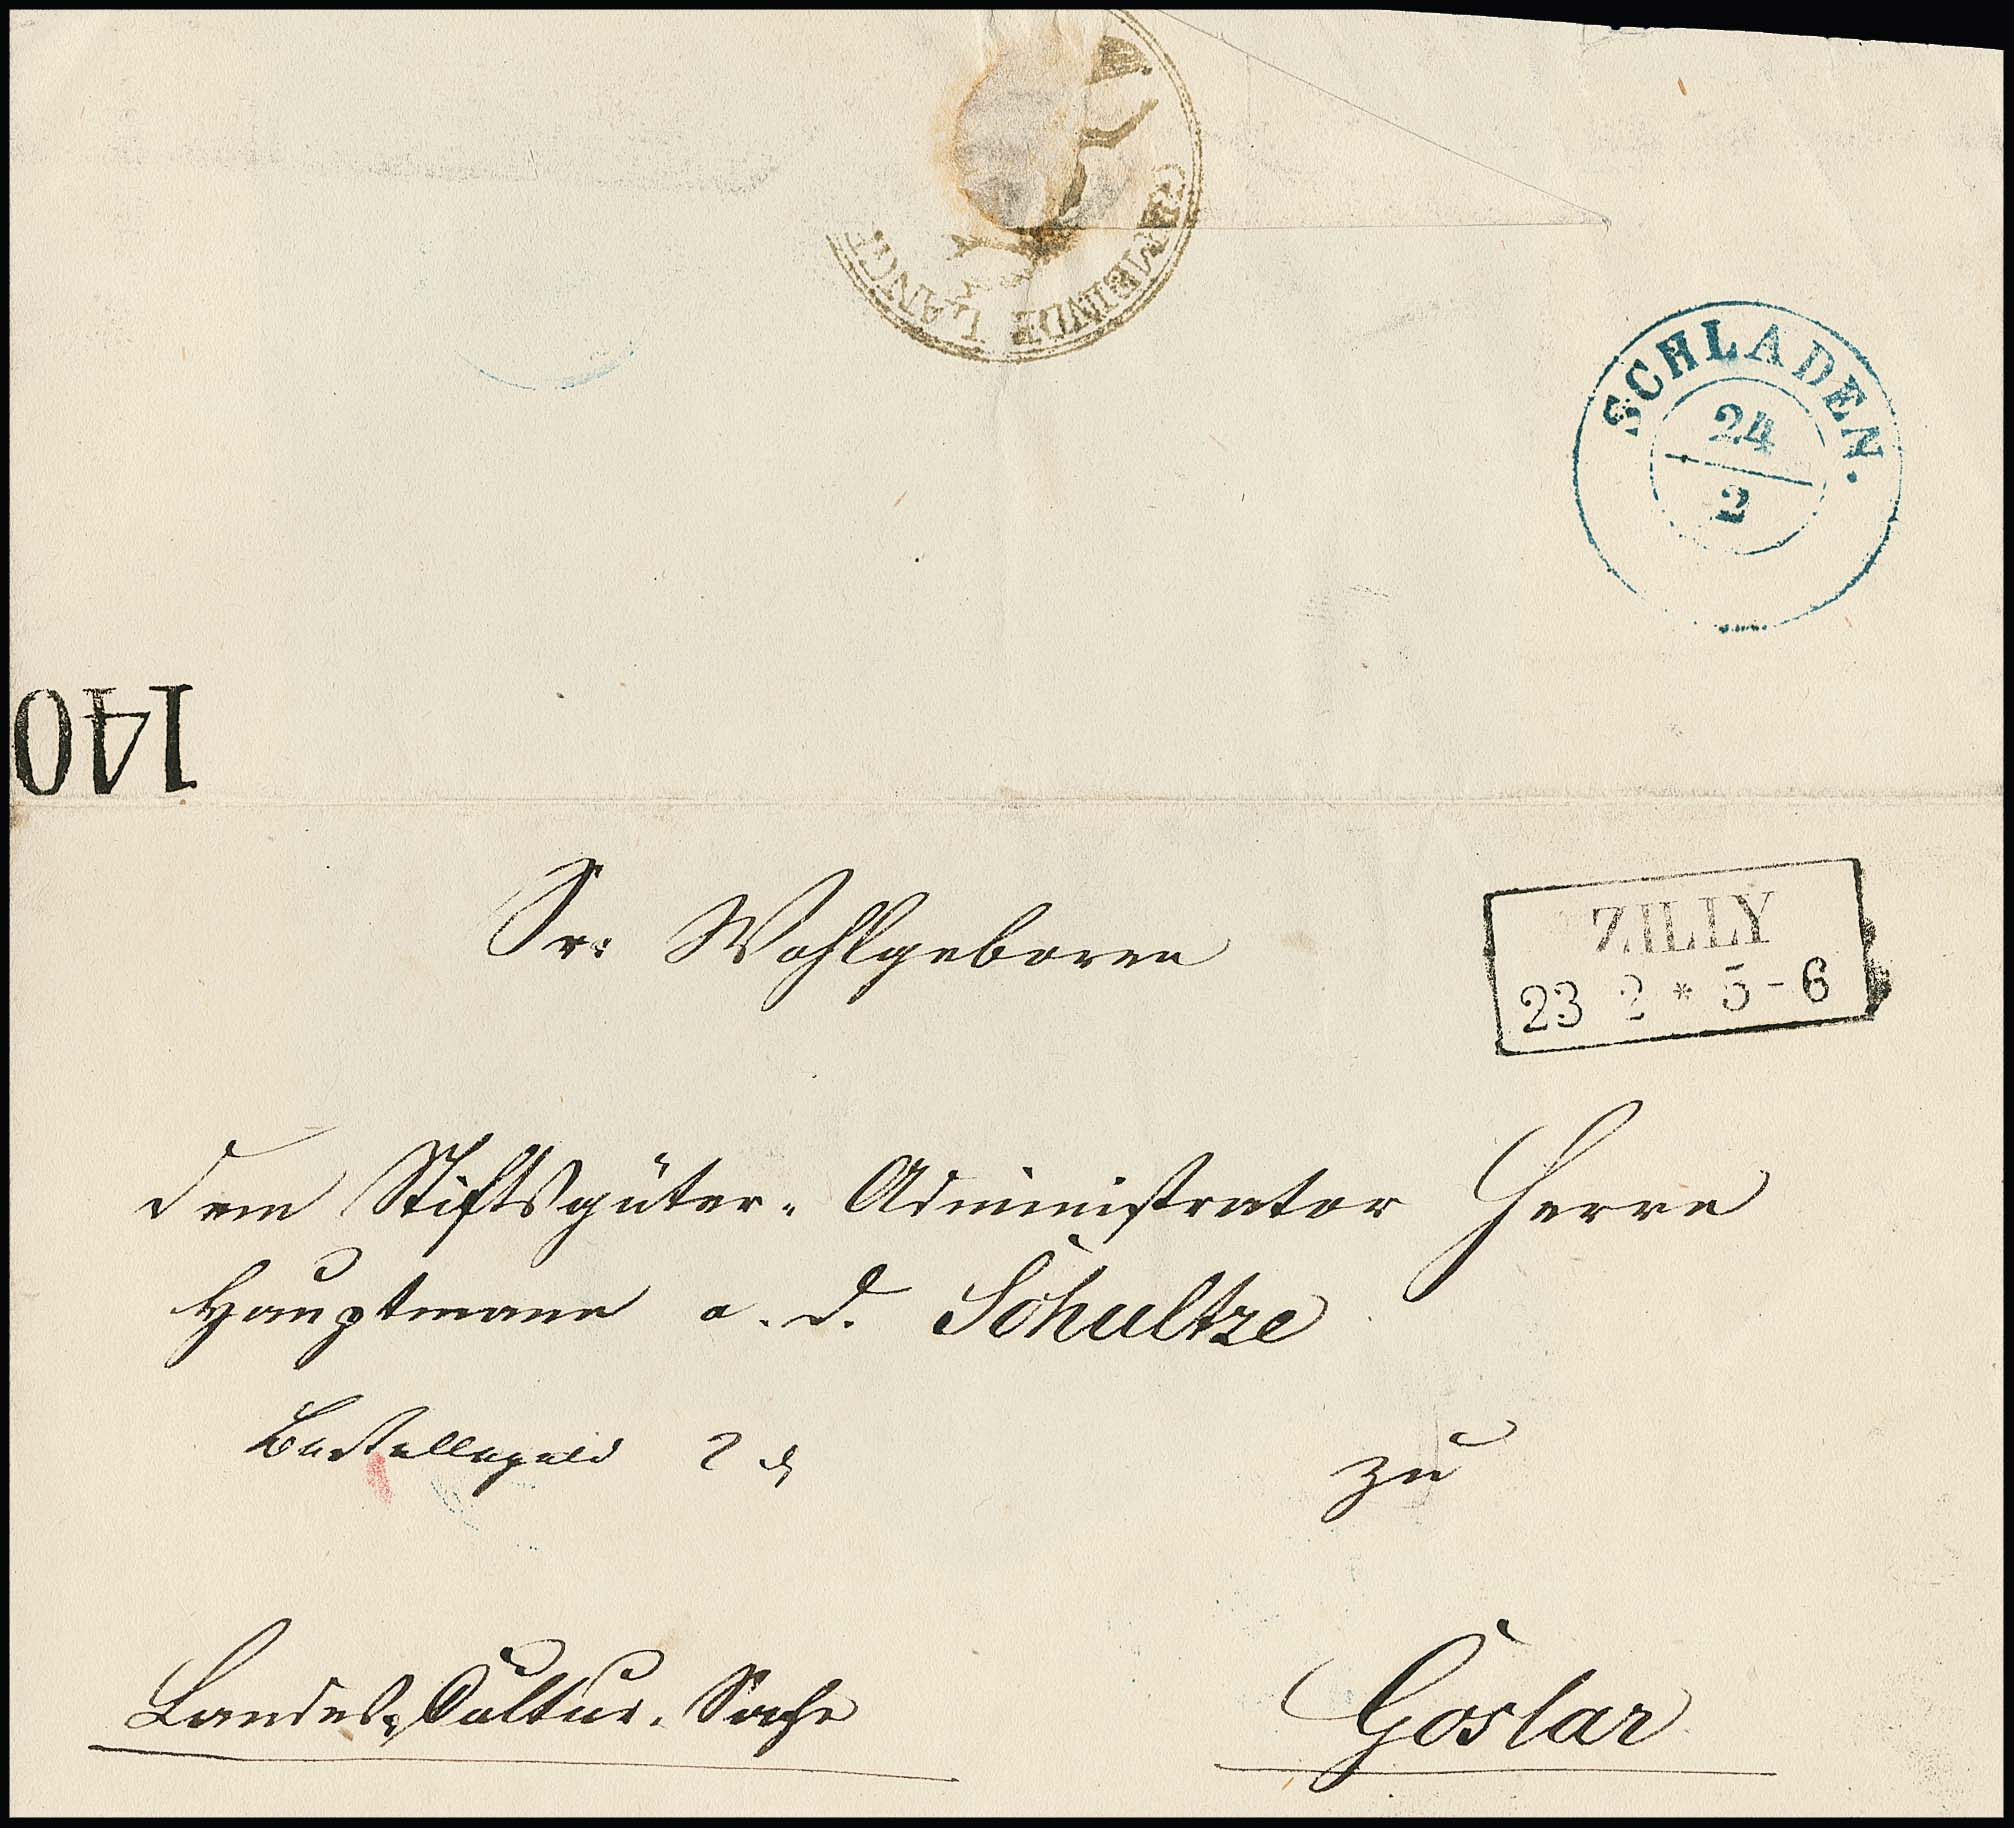 GEMEINDE LANG
SCHLADEN.
24
2
140
Sr. Wohlgeboren
ZILLY
23 2 * 5-6
dem Stiftsgüter- Administrator Herrn
Hauptmann a. D. Schultze
Bestellgeld 2 ₰
zu
Landes-Cultur-Sache
Goslar